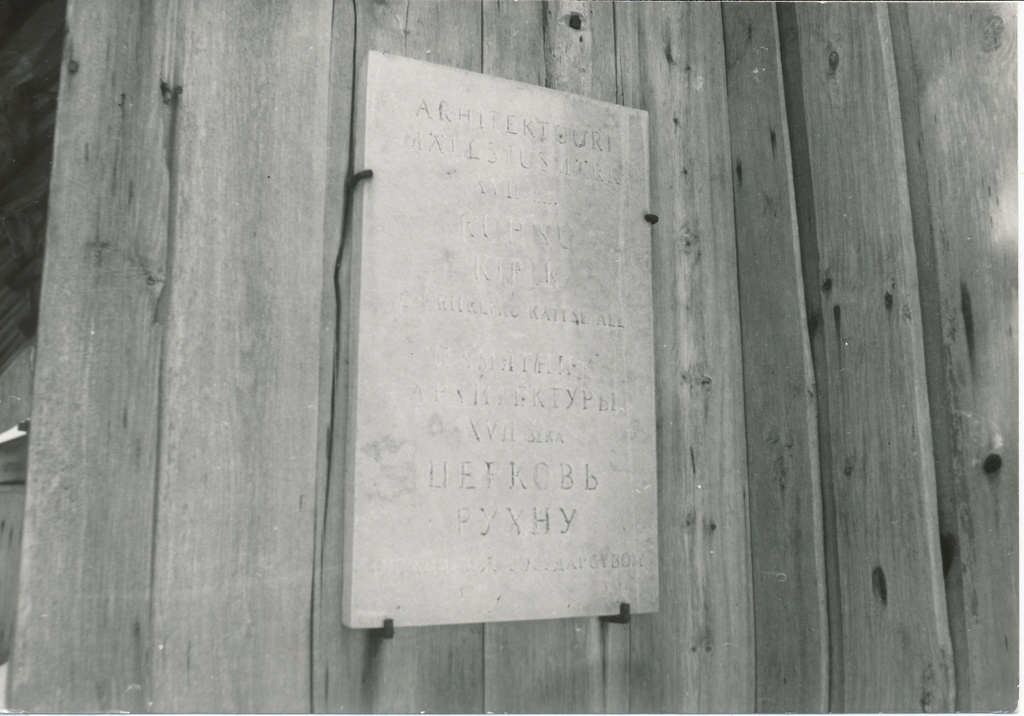 ARHITEKTUURI
MÄLESTUSMÄRK
XVII
RUHNU
KIRIK
RIIKLIKU KAITSE ALL
ПАМЯТНИК
АРХИТЕКТУРЫ
XVII ВЕКА
ЦЕРКОВЬ
РУХНУ
ГОСУДАРСТВОМ